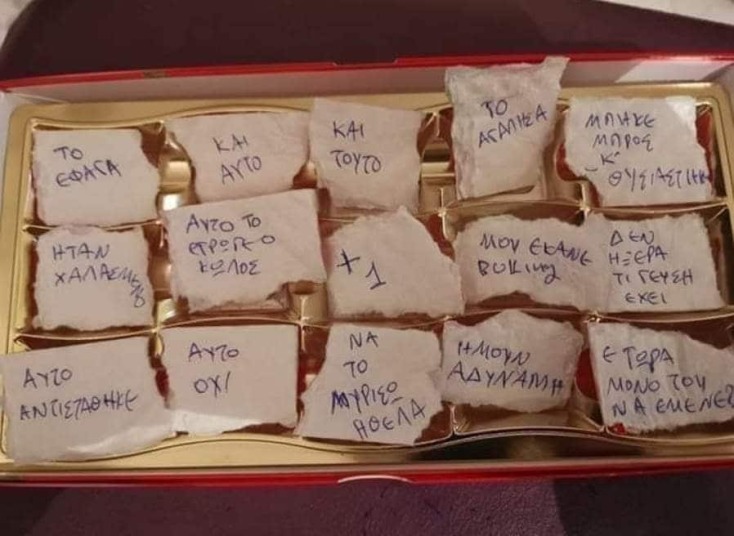 ΤΟ
ΕΦΑΓΑ
ΚΑΙ
ΑΥΤΟ
ΚΑΙ
ΤΟΥΤΟ
ΤΟ
ΑΓΑΠΗΣΑ
ΜΠΗΚΕ
ΜΠΡΟΣ
Κ'
ΘΥΣΙΑΣΤΗΚ
ΗΤΑΝ
ΧΑΛΑΣΜΕΝΟ
ΑΥΤΟ ΤΟ
ΕΤΡΩΓΕ Ο
ΚΩΛΟΣ
+1
ΜΟΥ ΕΚΑΝΕ
BULLing
ΔΕΝ
ΗΞΕΡΑ
ΤΙ ΓΕΥΣΗ
ΕΧΕΙ
ΑΥΤΟ
ΑΝΤΙΣΤΑΘΗΚΕ
ΑΥΤΟ
ΟΧΙ
ΝΑ
ΤΟ
ΜΥΡΙΣΩ
ΗΘΕΛΑ
ΗΜΟΥΝ
ΑΔΥΝΑΜΗ
Ε ΤΩΡΑ
ΜΟΝΟ ΤΟΥ
ΝΑ ΕΜΕΝΕ